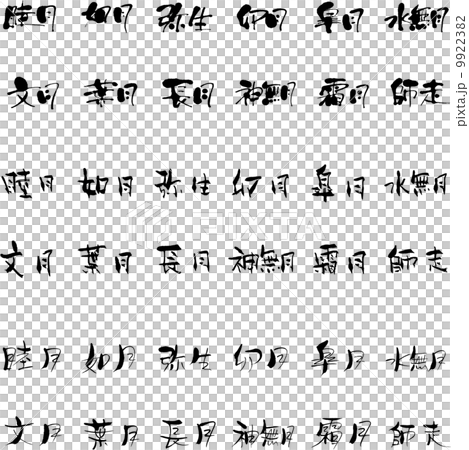 睦月 如月 弥生 卯月 皐月 水無月
文月 葉月 長月 神無月 霜月 師走
睦月 如月 弥生 卯月 皐月 水無月
文月 葉月 長月 神無月 霜月 師走
睦月 如月 弥生 卯月 皐月 水無月
文月 葉月 長月 神無月 霜月 師走
PIXTA
pixta.jp - 9922382